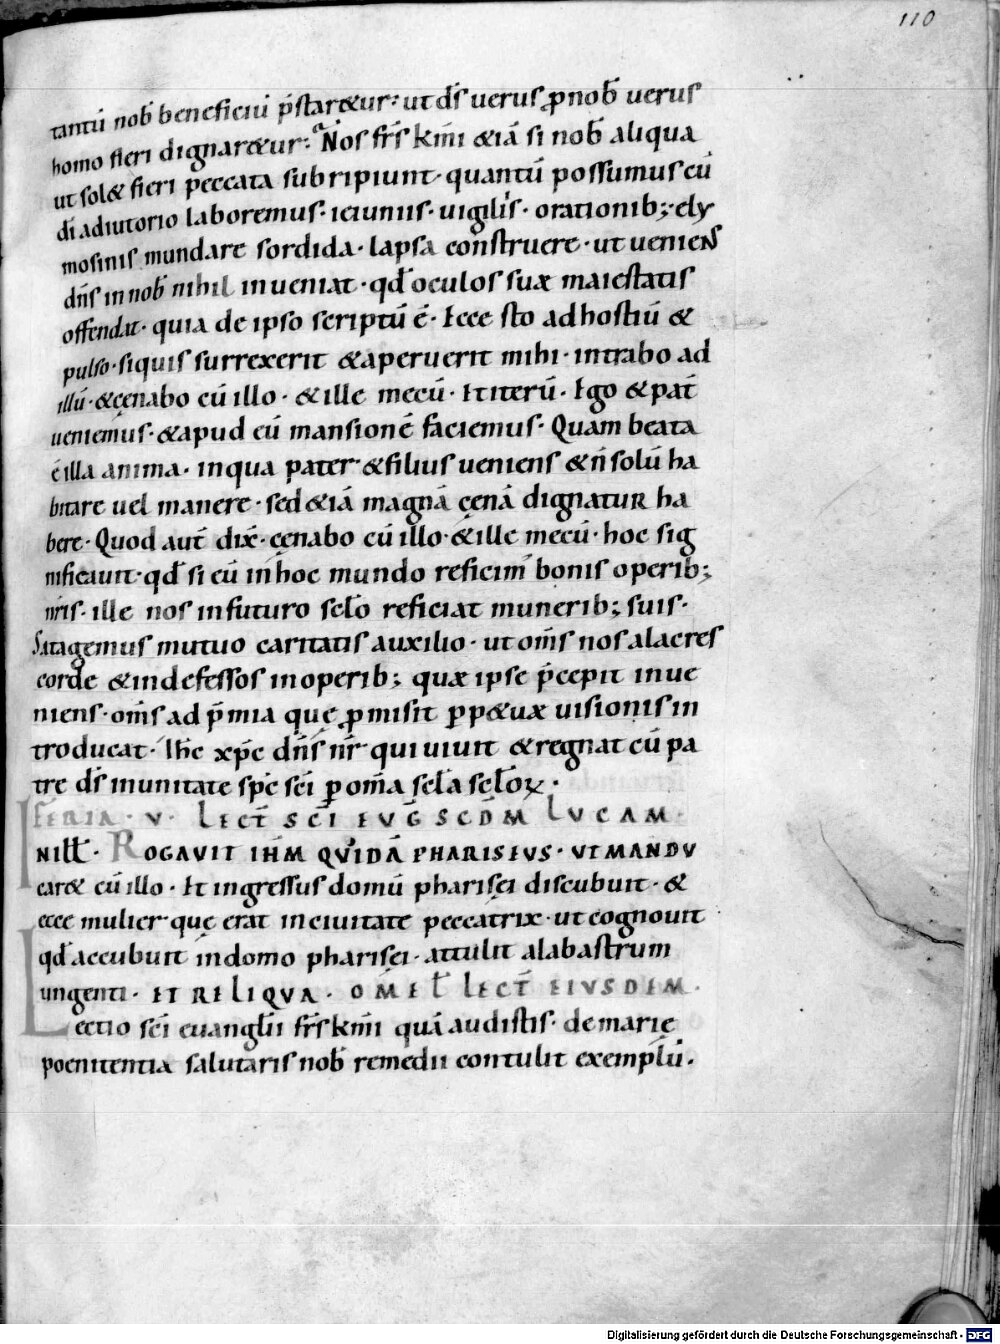 110
tantū nob̄ beneficiū p̄star&ur: ut d̄s uerus ꝓnob̄ uerus
homo fieri dignar&ur: Nos fr̄s km̄i &iā si nob̄ aliqua
ut sol& fieri peccata subripiunt· quantū possumus cū
dī adiutorio laboremus· ieiuniis· uigiliis· orationib; ely
mosinis mundare sordida· lapsa construere· ut ueniens
dn̄s in nob̄ nihil inueniat· qd̄ oculos suæ maiestatis
offendat· quia de ipso scriptū ē· Ecce sto adhostiū &
pulso· siquis surrexerit &aperuerit mihi· intrabo ad
illū· &cęnabo cū illo· &ille mecū· Et iterū· Ego &pat̄
ueniemus· &apud eū mansionē faciemus· Quam beata
ē illa anima· inqua pater &filius ueniens &n̄ solū ha
bitare uel manere· sed &iā magnā cęnā dignatur ha
bere· Quod aut̄ dix̄· cęnabo cū illo· &ille mecū· hoc sig
nificauit· qd̄ si eū inhoc mundo reficim̄ bonis operib;
nr̄is· ille nos infuturo sc̄lo reficiat munerib; suis·
Satagemus mutuo caritatis auxilio· ut om̄s nos alacres
corde &indefessos inoperib; quæ ipse p̄cepit inue
niens· om̄s ad p̄mia quę ꝓmisit ꝑp&uæ uisionis in
troducat· Ih̄c xp̄c dn̄s nr̄ qui uiuit &regnat cū pa
tre d̄s inunitate sp̄c sc̄i ꝑ om̄a sc̄la sc̄loꝝ·
FERIA· V· LECT̄ SC̄I EVḠ SCD̄M LVCAM·
IN ILL̄· ROGAVIT IHM̄ QVIDĀ PHARISEVS· VT MANDV
car& cū illo· Et ingressus domū pharisęi discubuit· &
ecce mulier quę erat inciuitate peccatrix· ut cognouit
qd̄ accubuit indomo pharisęi· attulit alabastrum
ungenti· ET RELIQVA· OMEL̄ LECT̄ EIVSDEM·
Lectio sc̄i euanglīi fr̄s km̄i quā audistis· de marię
poenitentia salutaris nob̄ remedii contulit exemplū·
Digitalisierung gefördert durch die Deutsche Forschungsgemeinschaft - DFG